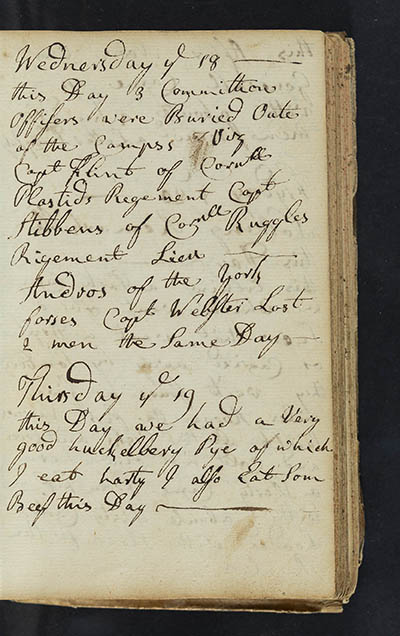 Wednersday yͤ 18
this Day 3 Committion
Offisers were Buried Oute
of the Camps Viz
Capt Flint of Cornll
Plastids Regement Capt
Stibbens of Cornll Ruggles
Rigement Lieu
Andros of the York
forses Capt Webster Lost
2 men the Same Day
Thirsday yͤ 19
this Day we had a Very
good huckelbery Pye of which
I eat harty I also Eat Som
Beef this Day